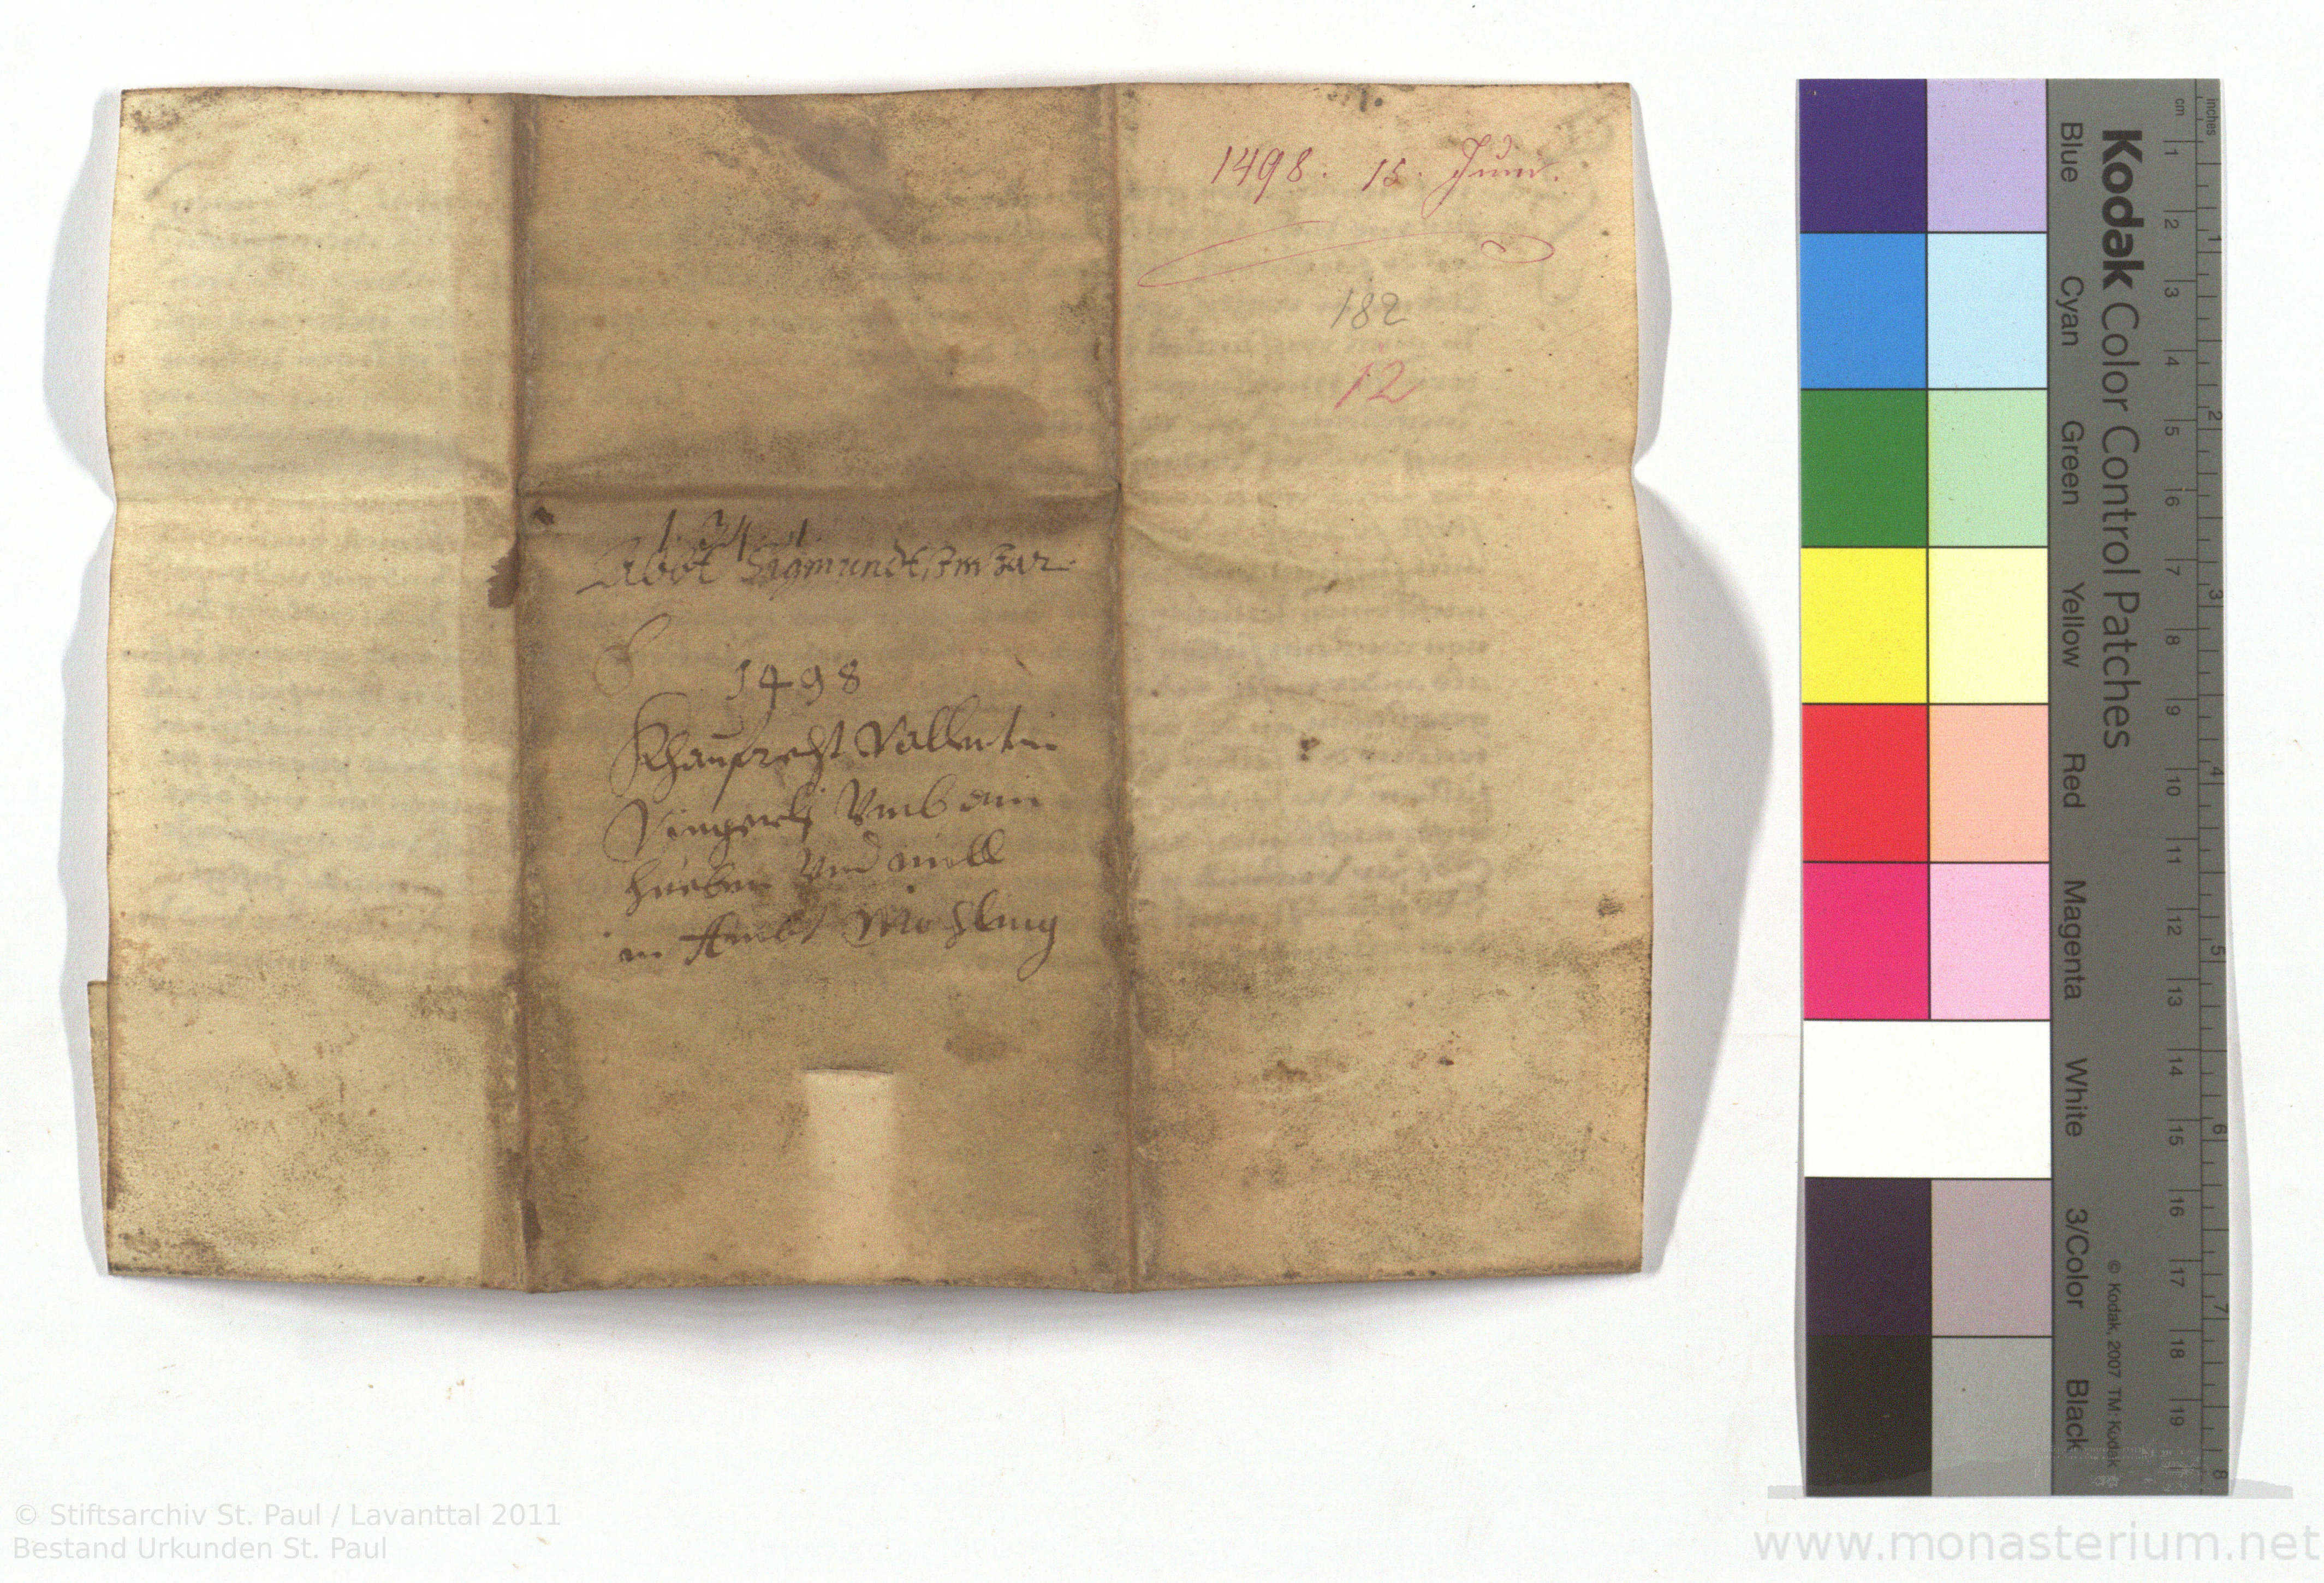 1498. 15. Juni.
182
12
1. 34. 1.
Abbt Sigmundt
1498
Khaufrecht Vallentin
Vingerls Vmb ain
hueben Vnd müll
in Ambt Möhling
Kodak Color Control Patches
Blue Cyan Green Yellow Red Magenta White 3/Color Black
© Kodak, 2007 TM: Kodak
cm 1 2 3 4 5 6 7 8 9 10 11 12 13 14 15 16 17 18 19
inches 1 2 3 4 5 6 7 8
© Stiftsarchiv St. Paul / Lavanttal 2011
Bestand Urkunden St. Paul
www.monasterium.net